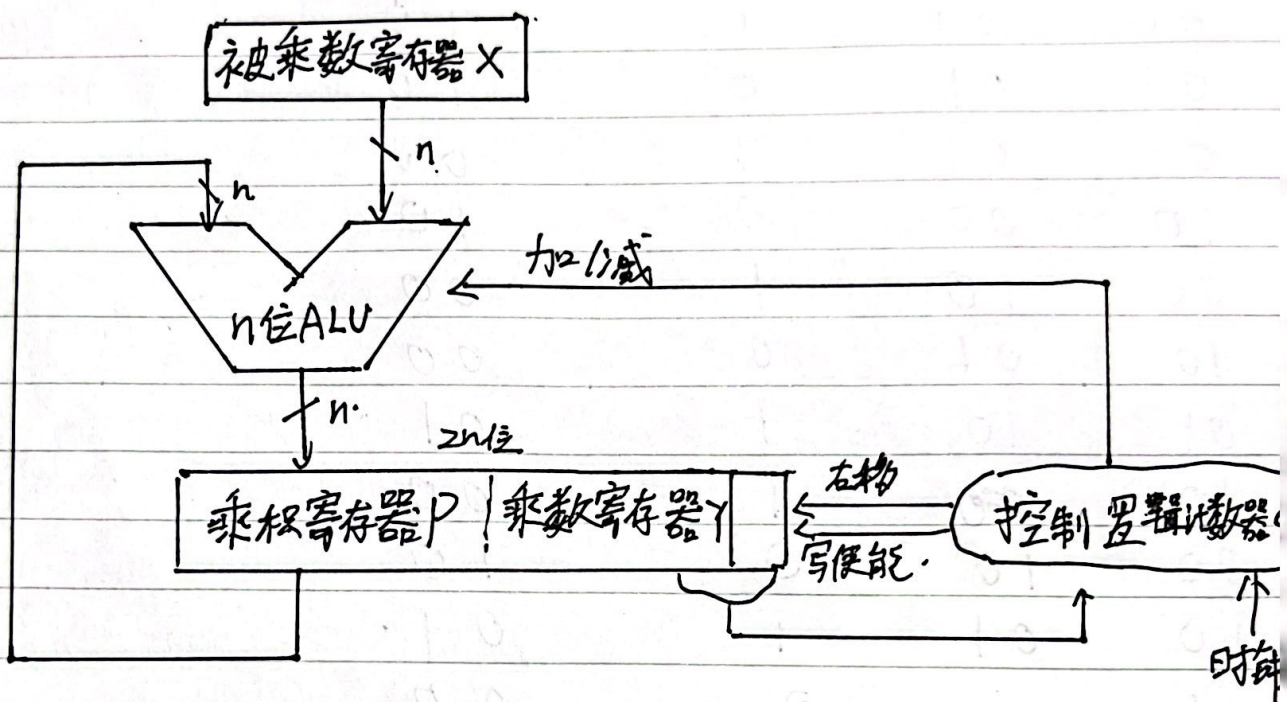 被乘数寄存器X
n
n
加/减
n位ALU
n
2n位
乘积寄存器P 乘数寄存器Y
右移
写使能
控制逻辑计数器
时钟